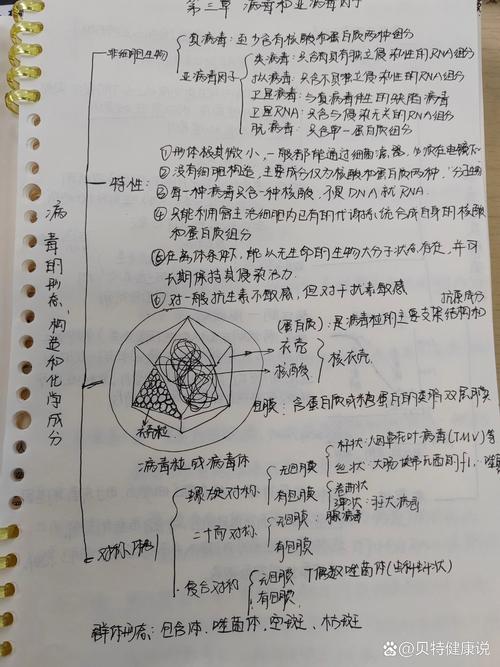 第三章 病毒和亚病毒因子
非细胞生物
真病毒：至少含有核酸和蛋白质两种组分
亚病毒因子
类病毒：只含具有独立侵染性的RNA组分
拟病毒：只含不具独立侵染性的RNA组分
卫星病毒：与真病毒伴生的缺陷病毒
卫星RNA：只含与侵染无关的RNA组分
朊病毒：只含单一蛋白质组分
病毒的形态、构造和化学成分
特性：
①形体极其微小，一般都能通过细菌滤器，必须在电镜下
②没有细胞构造，主要成分仅为核酸和蛋白质两种，"分子生物
③每一种病毒只含一种核酸，不是DNA就RNA.
④只能利用宿主活细胞内已有的代谢系统合成自身的核酸
和蛋白质组分
⑤在离体条件下，能以无生命的生物大分子状态存在，并可
长期保持其侵染活力
⑥对一般抗生素不敏感，但对干扰素敏感
(蛋白质)：是病毒粒的主要支架结构和
抗原成分
衣壳
核酸
核衣壳
包膜：含蛋白质或糖蛋白的类脂双层膜
病毒粒或病毒体
对称体制
螺旋对称
无包膜
杆状：烟草花叶病毒(TMV)等
丝状：大肠杆菌的f1、
有包膜
弹状：狂犬病毒
二十面对称
无包膜
腺病毒
有包膜
复合对称
无包膜
T偶数噬菌体(蝌蚪状)
有包膜
群体形态：包含体、噬菌体、空斑、枯斑
Baidu 贝特健康说